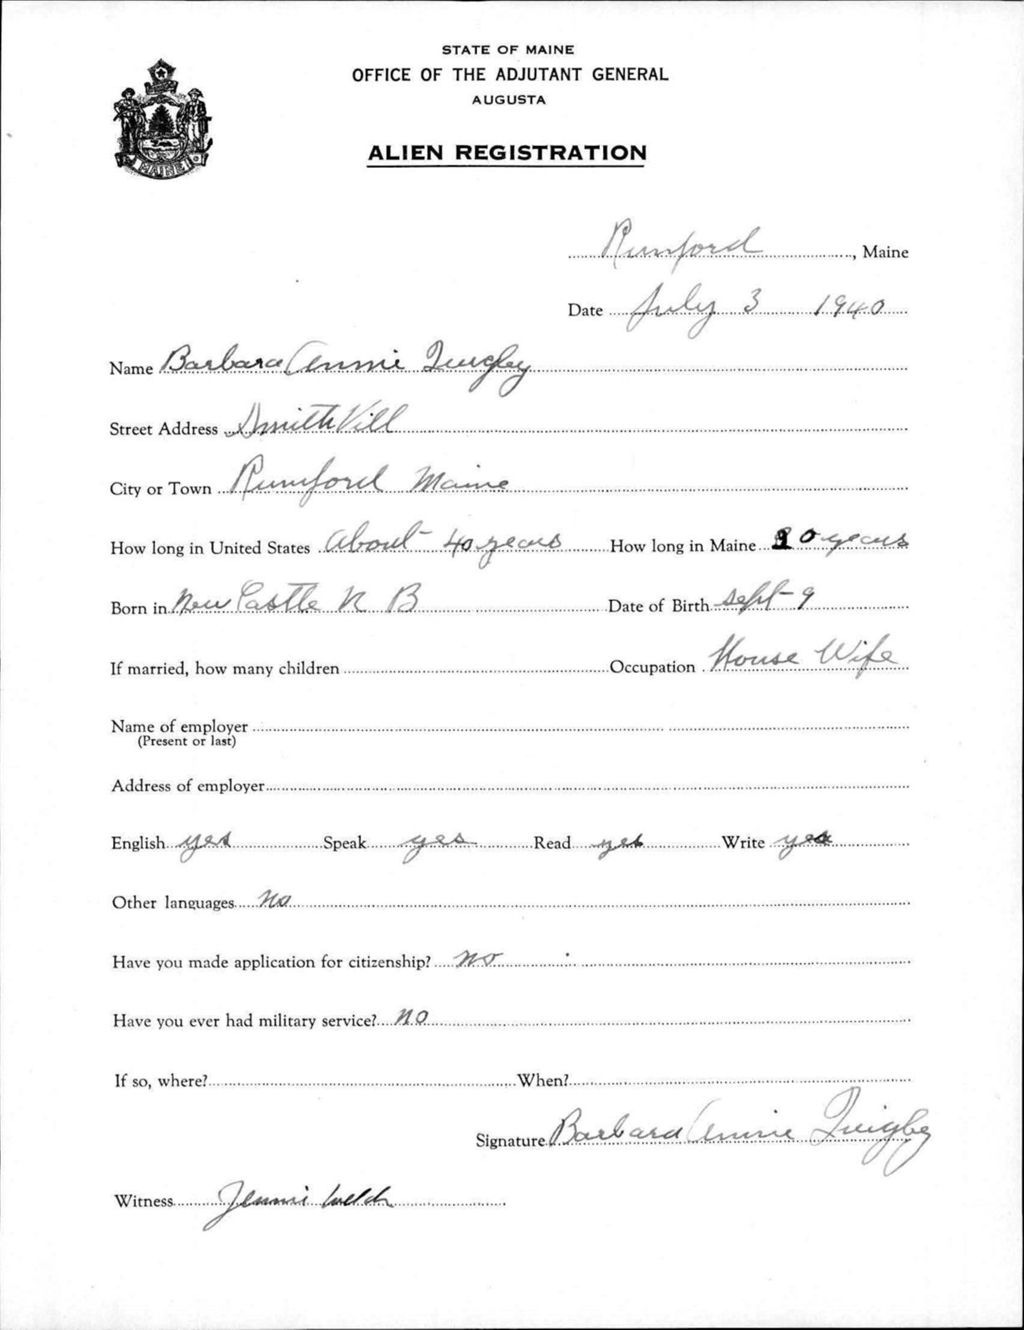 STATE OF MAINE
OFFICE OF THE ADJUTANT GENERAL
AUGUSTA
ALIEN REGISTRATION
MAINE
Rumford, Maine
Date July 3 1940
Name Barbara Annie Quigley
Street Address Smith Vill
City or Town Rumford Maine
How long in United States About 40 years How long in Maine 0 years
Born in New Castle N B Date of Birth Sept 9
If married, how many children Occupation House Wife
Name of employer
(Present or last)
Address of employer
English yes Speak yes Read yes Write yes
Other languages no
Have you made application for citizenship? no
Have you ever had military service? no
If so, where? When?
Signature Barbara Annie Quigley
Witness Jennie Welch